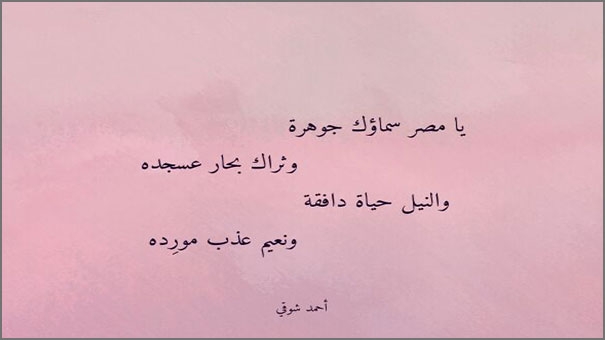 يا مصر سماؤك جوهرة
وثراك بحار عسجده
والنيل حياة دافقة
ونعيم عذب مورِده
أحمد شوقي